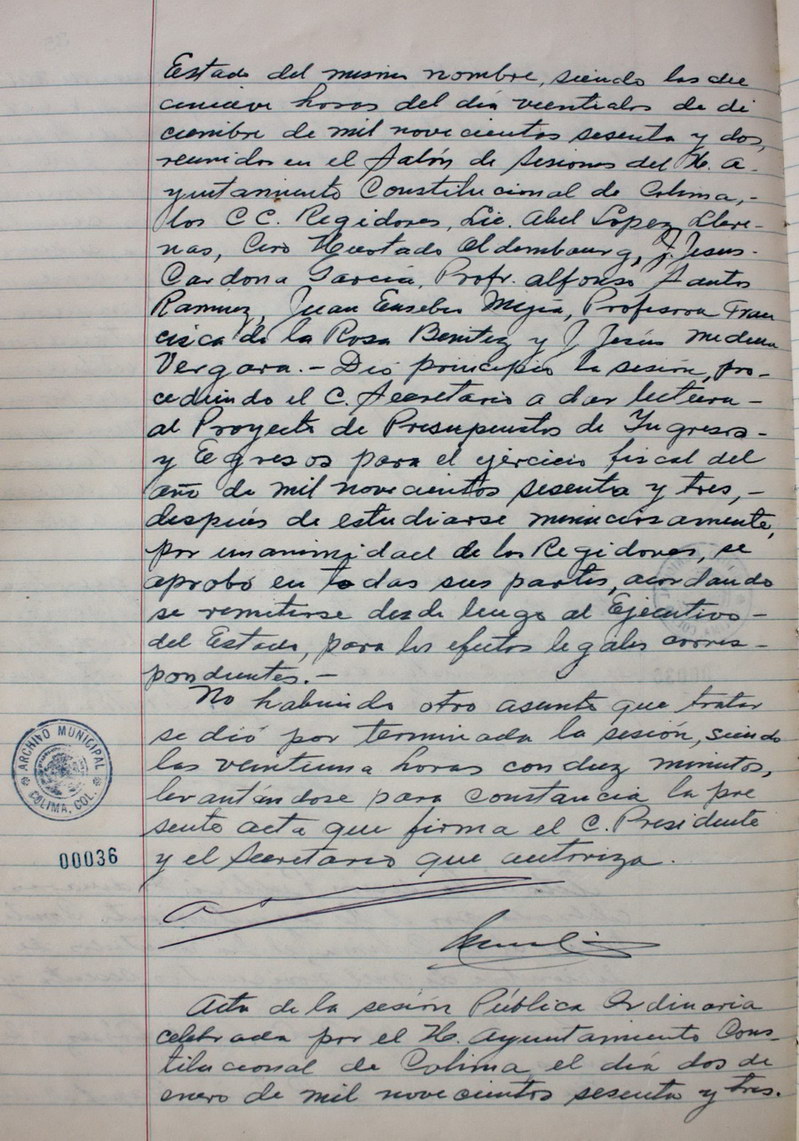 Estado del mismo nombre, siendo las die
cinueve horas del día veintidos de di
ciembre de mil novecientos sesenta y dos,
reunidos en el Salón de Sesiones del H. A-
yuntamiento Constitucional de Colima,-
los C C. Regidores, Lic. Abel López Llere-
nas, Ciro Hurtado Oldembourg, J. Jesús-
Cardona García, Profr. Alfonso Santos
Ramirez, Juan Eusebio Mejía, Profesora Fran
cisca de la Rosa Benitez y J. Jesús Medina
Vergara.- Dió principio la sesión, pro-
cediendo el C. Secretario a dar lectura-
al Proyecto de Presupuestos de Ingresos-
y Egresos para el ejercicio fiscal del
año de mil novecientos sesenta y tres,-
después de estudiarse minuciosamente,
por unanimidad de los Regidores, se
aprobó en todas sus partes, acordando
se remitirse desde luego al Ejecutivo-
del Estado, para los efectos legales corres-
pondientes.-
No habiendo otro asunto que tratar
se dió por terminada la sesión, siendo
las veintiuna horas con diez minutos,
levantándose para constancia la pre
sente acta que firma el C. Presidente
y el Secretario que autoriza.
ARCHIVO MUNICIPAL
COLIMA, COL.
00036
Acta de la sesión Pública Ordinaria
celebrada por el H. Ayuntamiento Cons-
titucional de Colima, el día dos de
enero de mil novecientos sesenta y tres.